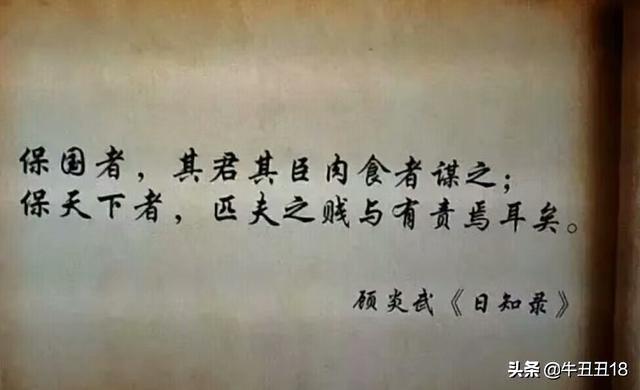 保国者，其君其臣肉食者谋之；
保天下者，匹夫之贱与有责焉耳矣。
顾炎武《日知录》
头条 @牛丑丑18